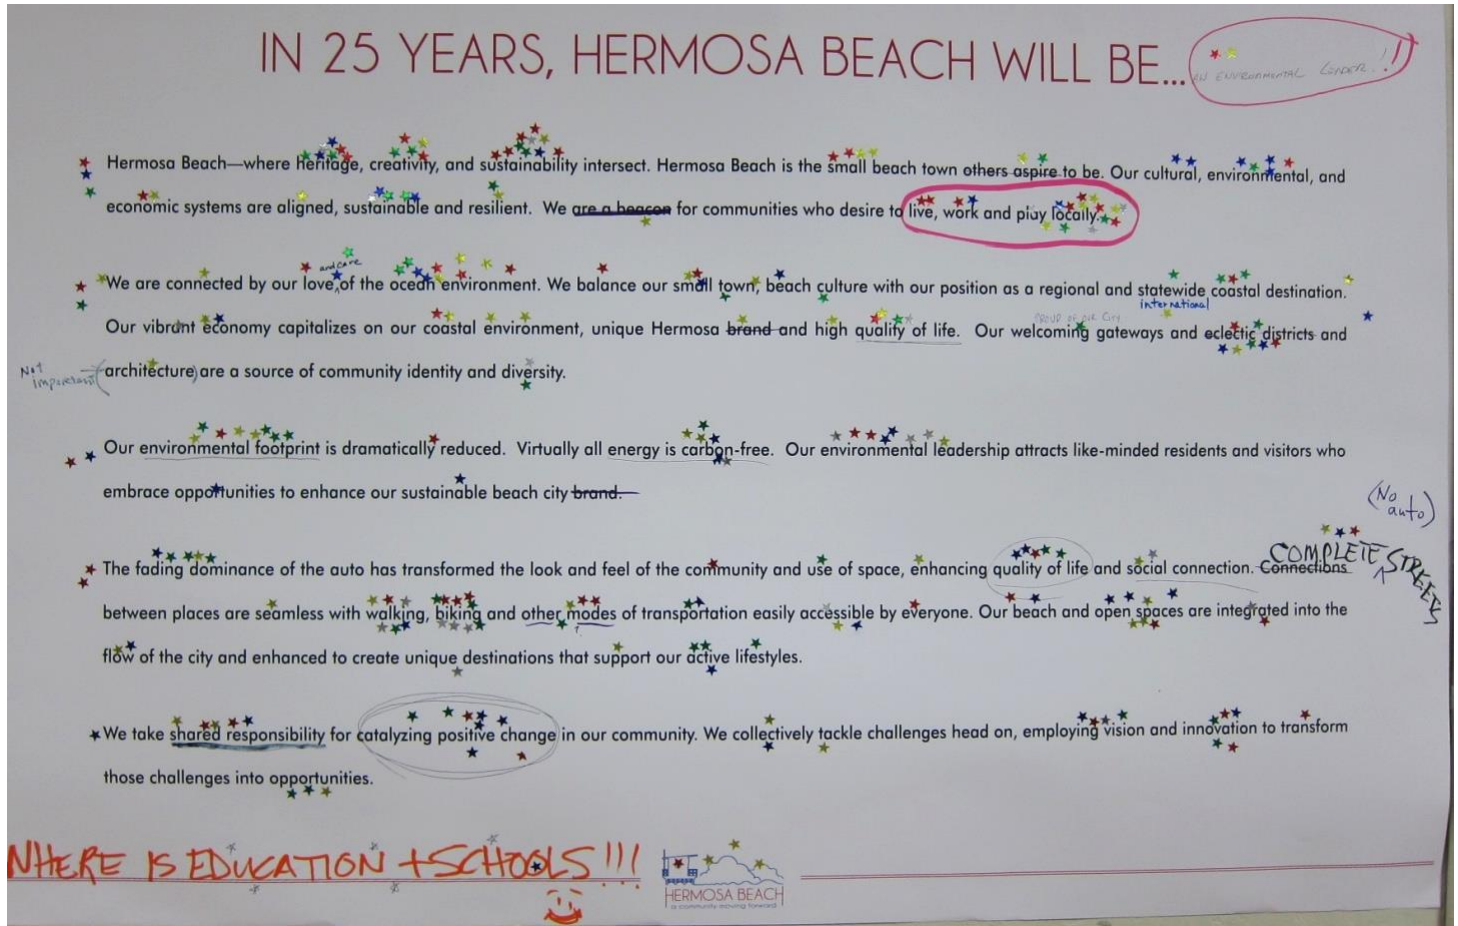 IN 25 YEARS, HERMOSA BEACH WILL BE...
AN ENVIRONMENTAL LEADER!!!
Hermosa Beach—where heritage, creativity, and sustainability intersect. Hermosa Beach is the small beach town others aspire to be. Our cultural, environmental, and
economic systems are aligned, sustainable and resilient. We are a beacon for communities who desire to live, work and play locally.
and care
We are connected by our love of the ocean environment. We balance our small town, beach culture with our position as a regional and statewide coastal destination.
international
PROUD OF OUR CITY
Our vibrant economy capitalizes on our coastal environment, unique Hermosa brand and high quality of life. Our welcoming gateways and eclectic districts and
Not
important
(architecture) are a source of community identity and diversity.
Our environmental footprint is dramatically reduced. Virtually all energy is carbon-free. Our environmental leadership attracts like-minded residents and visitors who
embrace opportunities to enhance our sustainable beach city brand.
(No
auto)
COMPLETE STREETS
The fading dominance of the auto has transformed the look and feel of the community and use of space, enhancing quality of life and social connection. Connections
between places are seamless with walking, biking and other modes of transportation easily accessible by everyone. Our beach and open spaces are integrated into the
flow of the city and enhanced to create unique destinations that support our active lifestyles.
We take shared responsibility for catalyzing positive change in our community. We collectively tackle challenges head on, employing vision and innovation to transform
those challenges into opportunities.
WHERE IS EDUCATION + SCHOOLS!!!
HERMOSA BEACH
a community moving forward